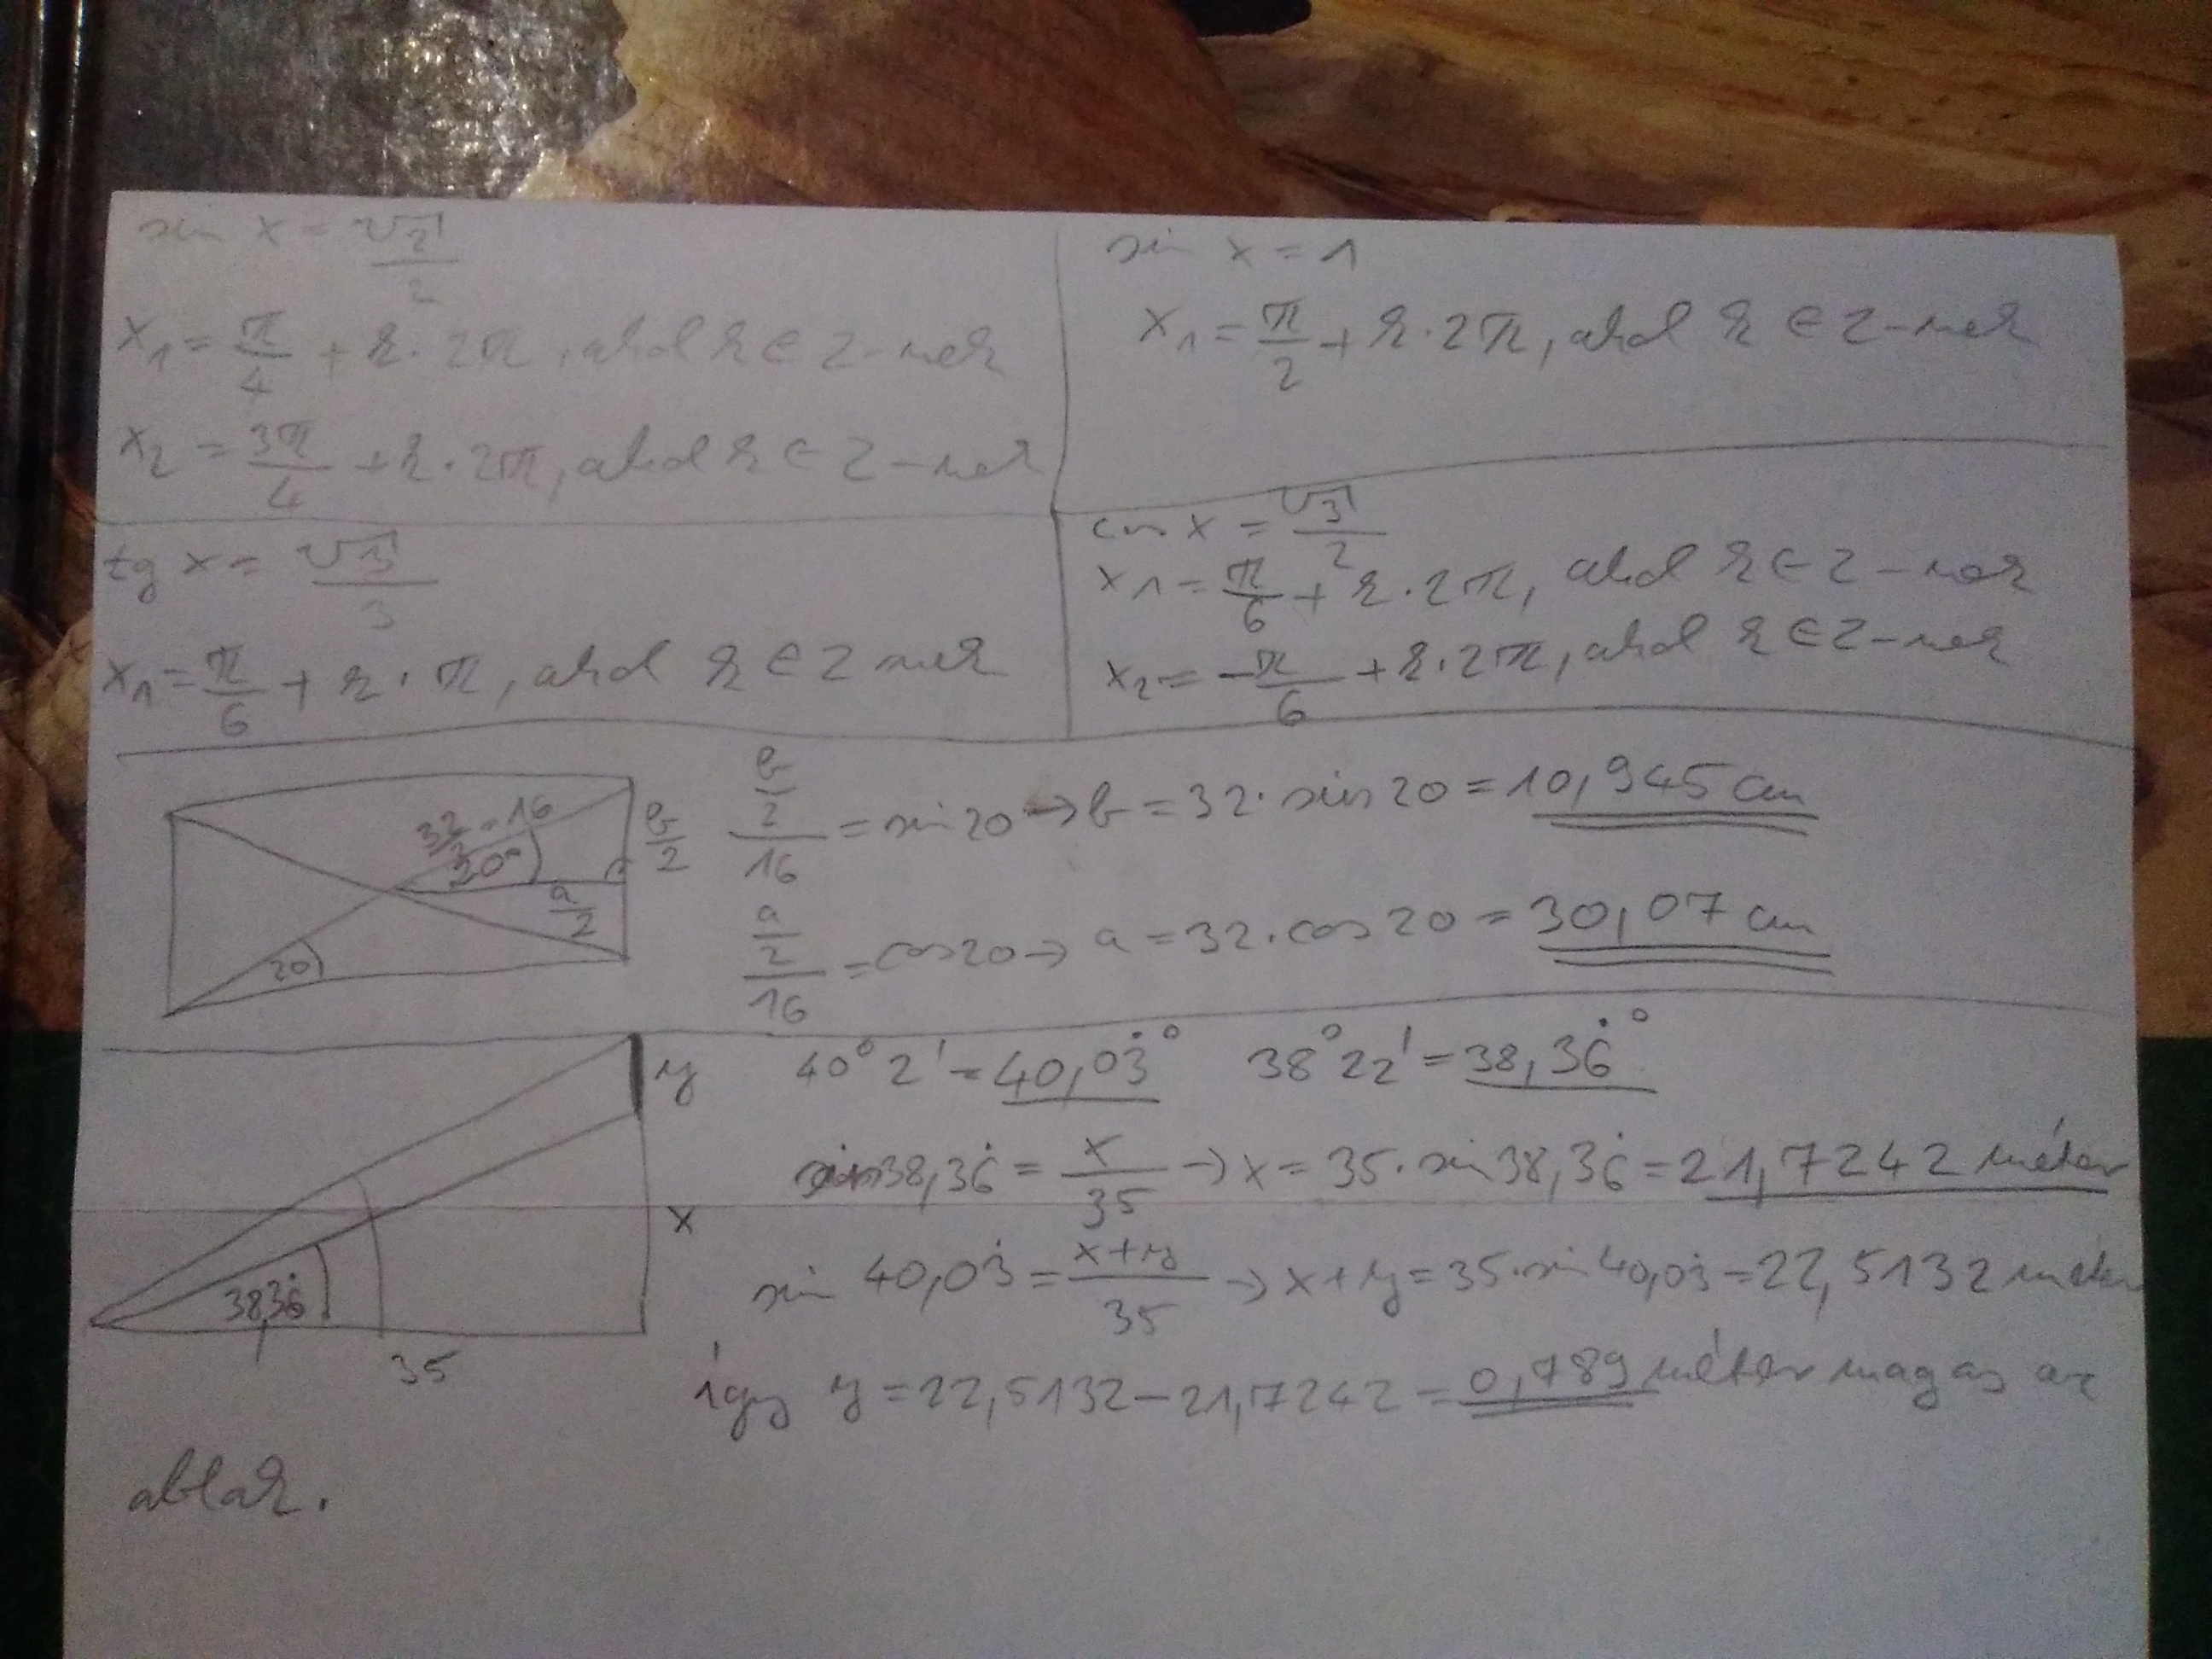 sin x = √2/2
x₁ = π/4 + k · 2π, ahol k ∈ Z-nek
x₂ = 3π/4 + k · 2π, ahol k ∈ Z-nek
sin x = 1
x₁ = π/2 + k · 2π, ahol k ∈ Z-nek
tg x = √3/3
x₁ = π/6 + k · π, ahol k ∈ Z nek
cos x = √3/2
x₁ = π/6 + k · 2π, ahol k ∈ Z-nek
x₂ = -π/6 + k · 2π, ahol k ∈ Z-nek
32/2 = 16
20°
b/2
a/2
20
(b/2)/16 = sin 20 → b = 32 · sin 20 = 10,945 cm
(a/2)/16 = cos 20 → a = 32 · cos 20 = 30,07 cm
y
x
38,36̇
35
40°2' = 40,03̇° 38°22' = 38,36̇°
sin 38,36̇ = x/35 → x = 35 · sin 38,36̇ = 21,7242 méter
sin 40,03̇ = (x+y)/35 → x+y = 35 · sin 40,03̇ = 22,5132 méter
így y = 22,5132 - 21,7242 = 0,789 méter magas az
ablak.